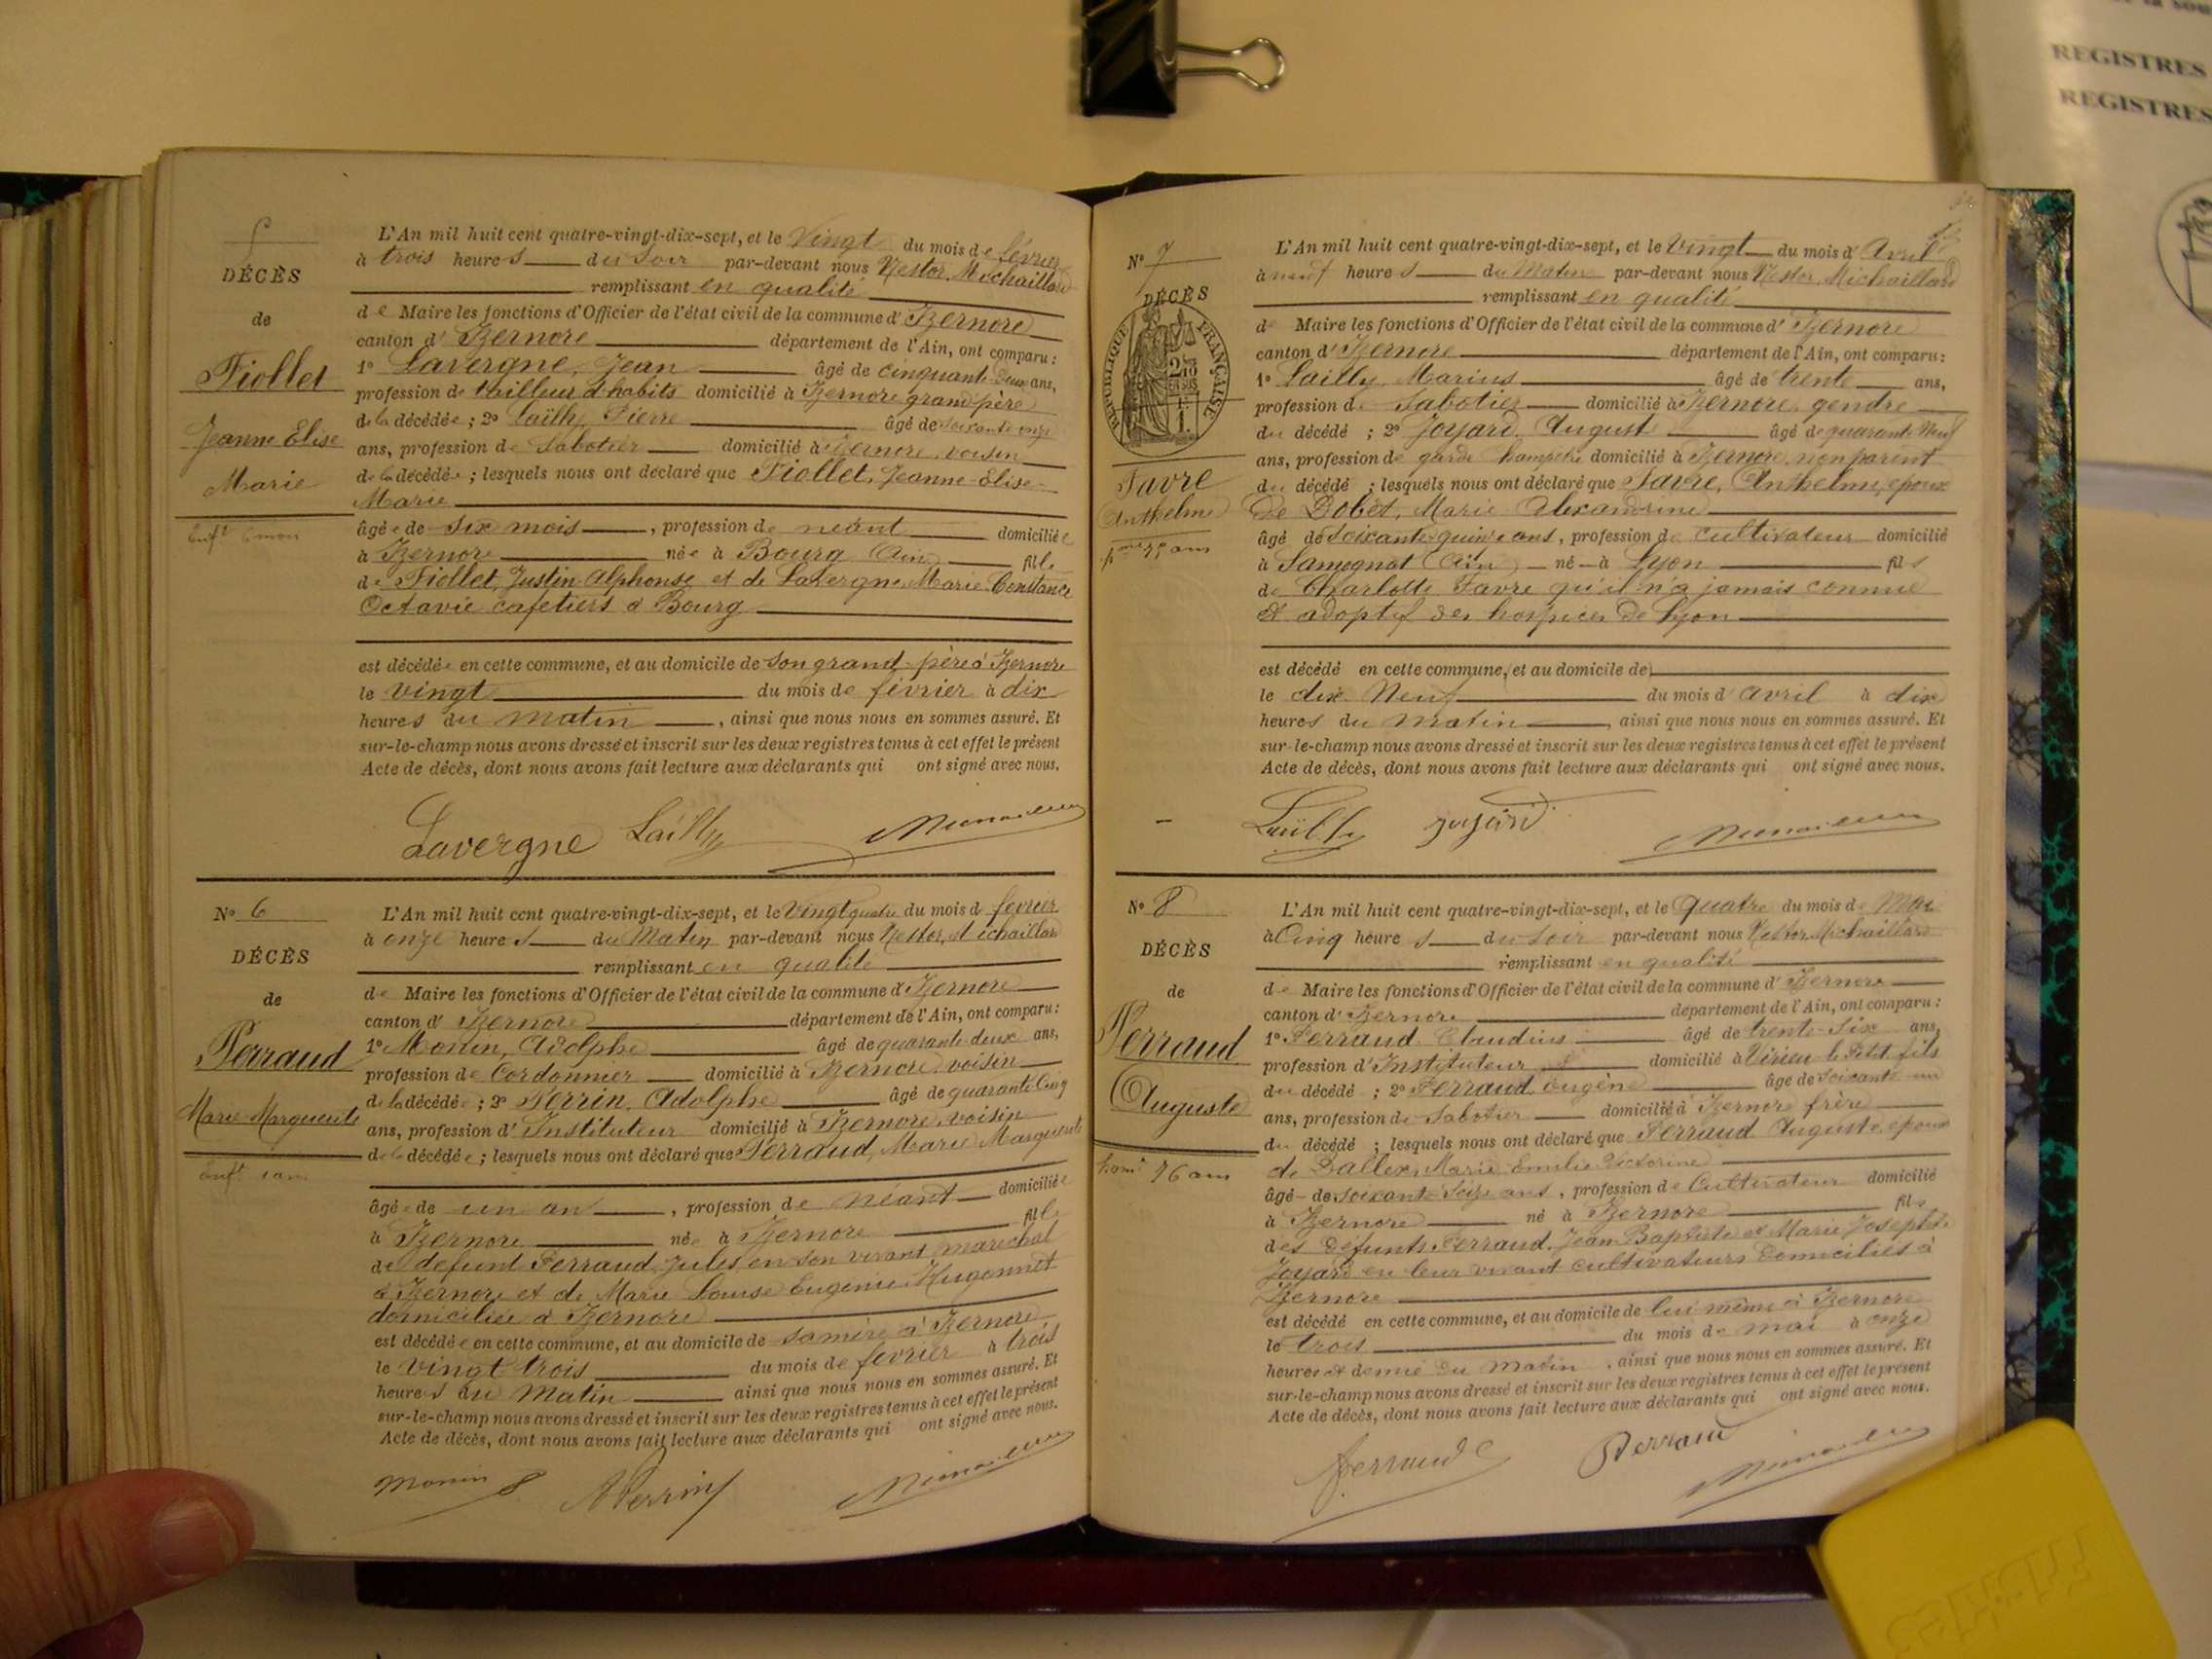 5
DÉCÈS
de
Fiollet
Jeanne Elise
Marie
Enft 6 mois
L'An mil huit cent quatre-vingt-dix-sept, et le Vingt du mois de février
à trois heures du Soir par-devant nous Nestor Michaillard
remplissant en qualité
de Maire les fonctions d'Officier de l'état civil de la commune d'Izernore
canton d'Izernore département de l'Ain, ont comparu :
1° Lavergne, Jean âgé de cinquante-deux ans,
profession de tailleur d'habits domicilié à Izernore grand père
de la décédée ; 2° Lailly, Pierre âgé de soixante onze
ans, profession de Sabotier domicilié à Izernore, voisin
de la décédée ; lesquels nous ont déclaré que Fiollet, Jeanne-Elise-
Marie
âgée de six mois, profession de néant domiciliée
à Izernore née à Bourg (Ain) fille
de Fiollet, Justin-Alphonse et de Lavergne Marie Constance
Octavie cafetiers à Bourg
est décédée en cette commune, et au domicile de son grand-père à Izernore
le vingt du mois de février à dix
heures du matin, ainsi que nous nous en sommes assuré. Et
sur-le-champ nous avons dressé et inscrit sur les deux registres tenus à cet effet le présent
Acte de décès, dont nous avons fait lecture aux déclarants qui ont signé avec nous.
Lavergne Lailly Michaillard
N° 6
DÉCÈS
de
Perraud
Marie Marguerite
Enft 1 an
L'An mil huit cent quatre-vingt-dix-sept, et le Vingt quatre du mois de février
à onze heures du Matin par-devant nous Nestor Michaillard
remplissant en qualité
de Maire les fonctions d'Officier de l'état civil de la commune d'Izernore
canton d'Izernore département de l'Ain, ont comparu :
1° Monin, Adolphe âgé de quarante deux ans,
profession de Cordonnier domicilié à Izernore voisin
de la décédée ; 2° Perrin, Adolphe âgé de quarante cinq
ans, profession d'Instituteur domicilié à Izernore, voisin
de la décédée ; lesquels nous ont déclaré que Perraud, Marie Marguerite
âgée de un an, profession de néant domiciliée
à Izernore née à Izernore fille
de défunt Perraud, Jules en son vivant maréchal
à Izernore et de Marie Louise Eugenie Hugonnet
domiciliée à Izernore
est décédée en cette commune, et au domicile de sa mère à Izernore
le vingt trois du mois de février à trois
heures du Matin ainsi que nous nous en sommes assuré. Et
sur-le-champ nous avons dressé et inscrit sur les deux registres tenus à cet effet le présent
Acte de décès, dont nous avons fait lecture aux déclarants qui ont signé avec nous.
Monin A Perrin Michaillard
N° 7
DÉCÈS
RÉPUBLIQUE FRANÇAISE
Favre
Anthelme
75 ans
L'An mil huit cent quatre-vingt-dix-sept, et le vingt du mois d'Avril
à neuf heures du Matin par-devant nous Nestor Michaillard
remplissant en qualité
de Maire les fonctions d'Officier de l'état civil de la commune d'Izernore
canton d'Izernore département de l'Ain, ont comparu :
1° Lailly, Marius âgé de trente ans,
profession de Sabotier domicilié à Izernore, gendre
du décédé ; 2° Joyard, Auguste âgé de quarante Neuf
ans, profession de garde champetre domicilié à Izernore, non parent
du décédé ; lesquels nous ont déclaré que Favre, Anthelme, epoux
de Bobet, Marie Alexandrine
âgé de soixante quinze ans, profession de cultivateur domicilié
à Samognat (Ain) né à Lyon fils
de Charlotte Favre qu'il n'a jamais connue
et adoptif des hospices de Lyon
est décédé en cette commune, et au domicile de
le dix Neuf du mois d'avril à dix
heures du matin, ainsi que nous nous en sommes assuré. Et
sur-le-champ nous avons dressé et inscrit sur les deux registres tenus à cet effet le présent
Acte de décès, dont nous avons fait lecture aux déclarants qui ont signé avec nous.
Lailly Joyard Michaillard
N° 8
DÉCÈS
de
Perraud
Auguste
76 ans
L'An mil huit cent quatre-vingt-dix-sept, et le quatre du mois de Mai
à Cinq heures du Soir par-devant nous Nestor Michaillard
remplissant en qualité
de Maire les fonctions d'Officier de l'état civil de la commune d'Izernore
canton d'Izernore département de l'Ain, ont comparu :
1° Perraud Claudius âgé de trente-Six ans,
profession d'Instituteur domicilié à Virieu le Petit fils
du décédé ; 2° Perraud, Eugène âgé de soixante un
ans, profession de Sabotier domicilié à Izernore frère
du décédé ; lesquels nous ont déclaré que Perraud Auguste, epoux
de Ballex, Marie Emilie Victorine
âgé de soixante Seize ans, profession de Cultivateur domicilié
à Izernore né à Izernore fils
des défunts Perraud, Jean Baptiste et Marie Josephte
Joyard en leur vivant cultivateurs domiciliés à
Izernore
est décédé en cette commune, et au domicile de lui-même à Izernore
le trois du mois de mai à onze
heures et demie du matin, ainsi que nous nous en sommes assuré. Et
sur-le-champ nous avons dressé et inscrit sur les deux registres tenus à cet effet le présent
Acte de décès, dont nous avons fait lecture aux déclarants qui ont signé avec nous.
Perraud C Perraud Michaillard
REGISTRES
REGISTRES